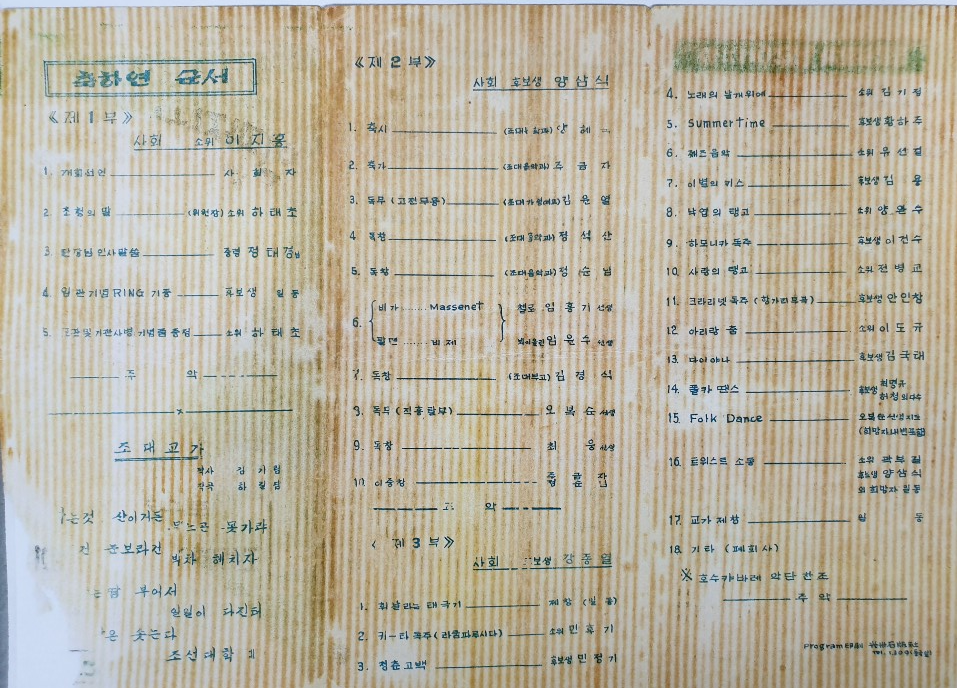 축하연 순서
《제 1 부》
사회 소위 이지홍
1. 개회선언 사 회 자
2. 초청의 말 (위원장) 소위 하 태 초
3. 단장님 인사말씀 중령 정 태 경님
4. 임관기념 RING 기증 후보생 일 동
5. 기념품 증정 소위 하 태 초
주 악
조 대 교 가
작사 김 기 림
작곡 하 길 담
는것 산이거든
못가랴
준보라건
박차 헤치자
땀 부어서
일일이 다진터
은 솟는다
조선대학
《제 2 부》
사회 후보생 양 삼 식
1. 축시 양 혜
2. 축가 (조대음악과) 주 금 자
3. 독무 (고전무용) 김 윤 열
4. 독창 (조대음악과) 정 석 산
5. 독창 (조대음악과) 정 순 님
6. 비가 ...... Massenet 첼로 임 홍 기 선생
팔면 ...... 비제 바이올린 임 윤 수 선생
7. 독창 (조대부고) 김 경 식
8. 독무 오 복 순 선생
9. 독창 최 웅 선생
10. 이중창
주 악
《제 3 부》
사회 후보생 강 중 열
1. 휘날리는 태극기 제창 (일 동)
2. 키-타 독주 (라쿰파루시타) 소위 민 후 기
3. 청춘고백 후보생 민 정 기
4. 노래의 날개위에 소위 김 기 정
5. Summer Time 후보생 황 하 주
6. 째즈 음악 소위 유 선 걸
7. 이별의 키스 후보생 김 용
8. 낙엽의 탱고 소위 양 완 수
9. 하모니카 독주 후보생 이 건 수
10. 사랑의 탱고 소위 전 병 교
11. 크라리넷 독주 (항가리무곡) 후보생 안 인 창
12. 아리랑 춤 소위 이 도 규
13. 다이아나 후보생 김 국 태
14. 폴카 땐스 후보생 최명규
허청 외다수
15. Folk Dance 오복순선생지도
(희망자 내빈포함)
16. 트위스트 소동 소위 곽 부 길
후보생 양 삼 식
외 희망자 일동
17. 교가 제창 일 동
18. 기타 (폐회사)
※ 호수카바레 악단 찬조
주 악
Program